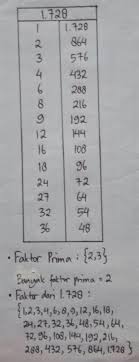 1.728
1 1.728
2 864
3 576
4 432
6 288
8 216
9 192
12 144
16 108
18 96
24 72
27 64
32 54
36 48
• Faktor Prima : {2,3}
Banyak faktor prima = 2
• Faktor dari 1.728 :
{1,2,3,4,6,8,9,12,16,18,
24,27,32,36,48,54,64,
72,96,108,144,192,216,
288,432,576,864,1.728}